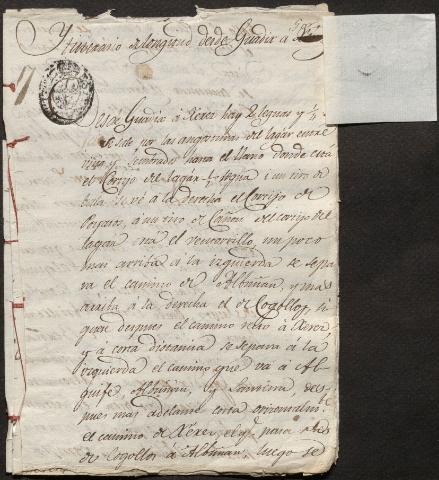 Ytinerario de longitud desde Guadix a
Desde Guadix à Xerez hay 2 leguas y 1/2
se sale por las angosturas del lagar entre
viñas y sembrados hasta el llano donde está
el Cortijo del lagar 1 legua à un tiro de
bala se vé à la derecha el Cortijo de
à un tiro de Cañon del cortijo del
lagar está el ventorrillo, un poco
mas arriba à la izquierda se sepa
va el camino de Albuñan, y mas
arriba à la derecha el de Cogollos, si
gue despues el camino recto à Xerez
y à corta distancia se separa à la
izquierda el camino que va à Al
quife, Aldeira, y Lanteira des
pues mas adelante corta
el camino de Xerez, el q.e pasa
de Cogollos à Albuñan, luego se